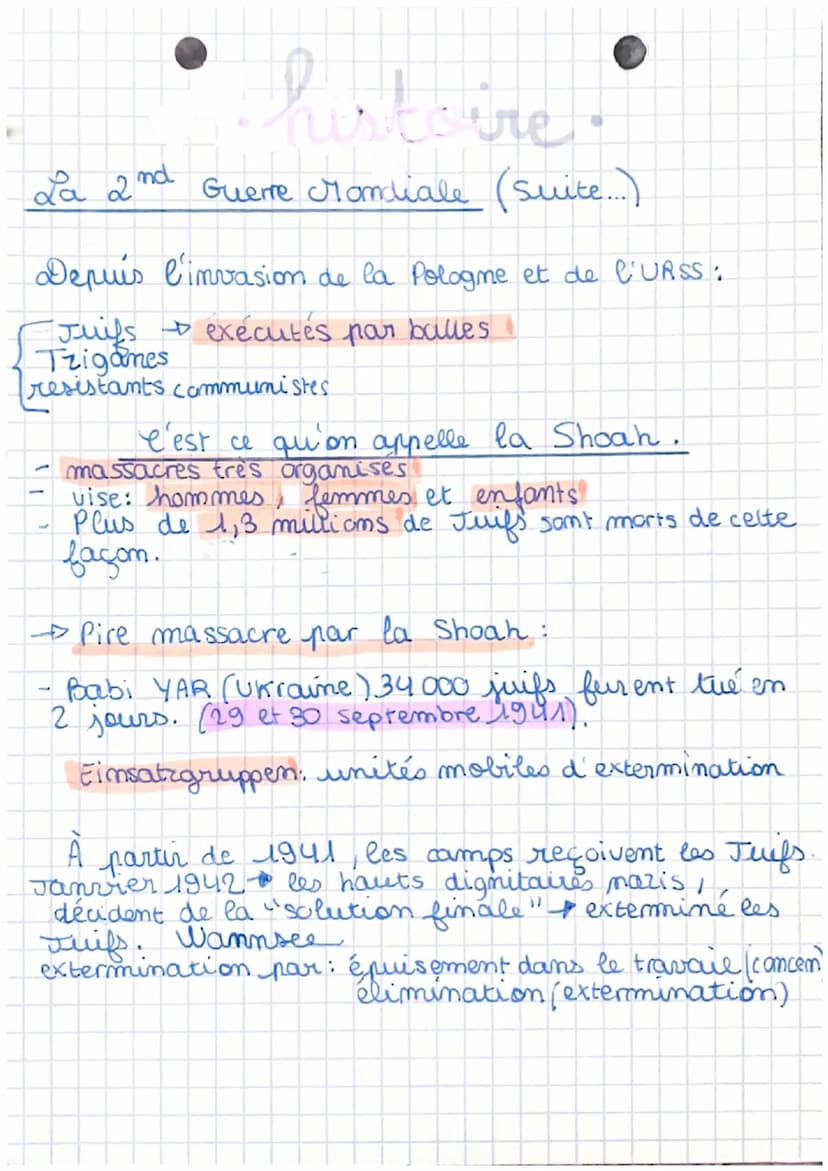 . histoire .
La 2nd Guerre Mondiale (suite...)
Depuis l'invasion de la Pologne et de l'URSS :
Juifs → exécutés par balles
Tziganes
resistants communistes
C'est ce qu'on appelle la Shoah.
- massacres très organisés
- vise: hommes, femmes et enfants
- Plus de 1,3 millions de Juifs sont morts de cette
façon.
→ Pire massacre par la Shoah :
- Babi YAR (Ukraine) 34 000 juifs furent tué en
2 jours. (29 et 30 septembre 1941).
Einsatzgruppen: unités mobiles d'extermination
À partir de 1941, les camps reçoivent les Juifs.
Janvier 1942 → les hauts dignitaires nazis,
décident de la "solution finale" → exterminé les
Juifs. Wannsee
extermination par: épuisement dans le travail (concen
élimination (extermination)